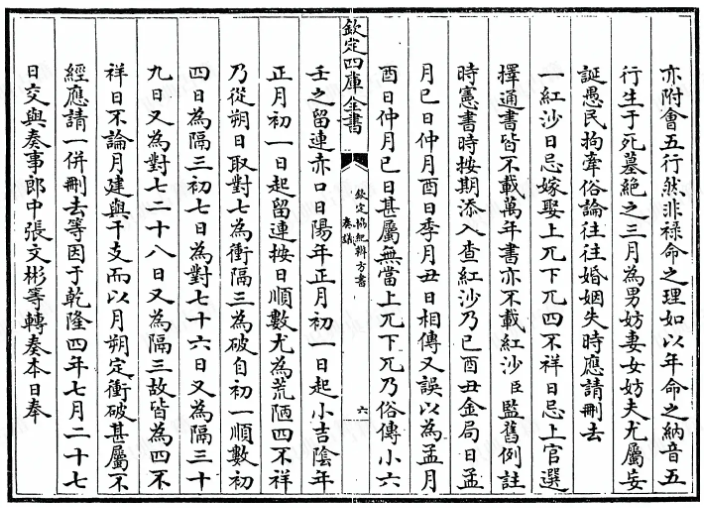 亦附會五行然非祿命之理如以年命之納音五
行生于死墓絶之三月為男妨妻女妨夫尤屬妄
誕愚民拘牽俗論往往婚姻失時應請刪去
一紅沙日忌嫁娶上兀下兀四不祥日忌上官選
擇通書皆不載萬年書亦不載紅沙臣監舊例註
時憲書時按期添入查紅沙乃巳酉丑金局日孟
月巳日仲月酉日季月丑日相傳又誤以為孟月
酉日仲月巳日甚屬無當上兀下兀乃俗傳小六
欽定四庫全書
欽定協紀辨方書
奏議
六
壬之留連赤口日陽年正月初一日起小吉陰年
正月初一日起留連按日順數尤為荒陋四不祥
乃從朔日取對七為衝隔三為破自初一順數初
四日為隔三初七日為對七十六日又為隔三十
九日又為對七二十八日又為隔三故皆為四不
祥日不論月建與干支而以月朔定衝破甚屬不
經應請一併刪去等因于乾隆四年七月二十七
日交與奏事郎中張文彬等轉奏本日奉